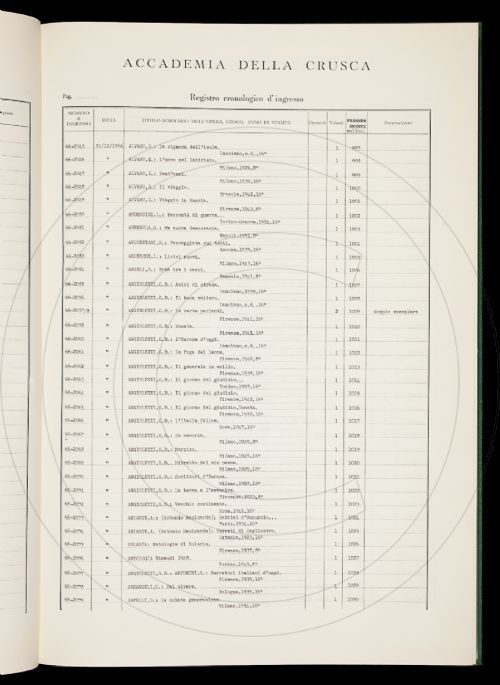 ACCADEMIA DELLA CRUSCA
Pag.
Registro cronologico d'ingresso
NUMERO
INGRESSO
DATA
TITOLO SOMMARIO DELL'OPERA, LUOGO, ANNO DI STAMPA
Opuscoli
Volumi
Osservazioni
66-2045 31/12/1966 ALVARO,C.: La signora dell'isola.
Lanciano,s.d.,16° 1 997
66-2046 " ALVARO,C.: L'uomo nel labirinto.
Milano,1926,8° 1 998
66-2047 " ALVARO,C.: Vent'anni.
Milano,1930,16° 1 999
66-2048 " ALVARO,C.: Il viaggio.
Brescia,1942,16° 1 1000
66-2049 " ALVARO,C.: Viaggio in Russia.
Firenze,1943,8° 1 1001
66-2050 " Racconti di guerra...
Torino-Genova,1924,16° 1 1002
66-2051 " AMENDOLA,G.: La nuova democrazia.
Napoli,1951,8° 1 1003
66-2052 " Passeggiate sui tetti.
1 1004
66-2053 " Lirici nuovi.
Milano,1943,16° 1 1005
66-2054 " ANGELI,S.: Sole tra i sassi.
Venezia,1941,8° 1 1006
66-2055 " ANGIOLETTI,G.B.: Amici di strada.
Lanciano,1939,16° 1 1007
66-2056 " ANGIOLETTI,G.B.: Il buon veliero.
Lanciano,s.d.,16° 1 1008
ANGIOLETTI,G.B.: Le carte parlanti.
Firenze,1941,16° 2 1009 doppio esemplare
ANGIOLETTI,G.B.: Donata.
Firenze,1941,16° 1 1010
66-2060 " ANGIOLETTI,G.B.: L'Europa d'oggi.
Lanciano,s.d.,16° 1 1011
66-2061 " ANGIOLETTI,G.B.: La fuga del leone.
1 1012
66-2062 " ANGIOLETTI,G.B.: Il generale in esilio.
Firenze,1938,16° 1 1013
66-2063 " ANGIOLETTI,G.B.: Il giorno del giudizio...
Torino,1928,16° 1 1014
66-2064 " ANGIOLETTI,G.B.: Il giorno del giudizio.
Firenze,1942,16° 1 1015
66-2065 " ANGIOLETTI,G.B.: Il giorno del giudizio,Donata.
1 1016
66-2066 " ANGIOLETTI,G.B.: L'Italia felice.
Roma,1947,16° 1 1017
66-2067 " ANGIOLETTI,G.B.: La memoria.
Milano,1949,8° 1 1018
66-2068 " ANGIOLETTI,G.B.: Narciso.
Milano,1949,16° 1 1019
66-2069 " ANGIOLETTI,G.B.: Ritratto del mio paese.
Milano,1929,16° 1 1020
66-2070 " ANGIOLETTI,G.B.: Scrittori d'Europa.
Milano,1928,16° 1 1021
66-2071 " ANGIOLETTI,G.B.: La terra e l'avvenire.
Piacenza,1923,8° 1 1022
66-2072 " ANGIOLETTI,G.B.: Vecchio continente.
Roma,1942,16° 1 1023
66-2073 " ANTANTE,A. (Antonio Magliardi): Gabriel d'Annunzio...
Paris,1914,16° 1 1024
66-2074 "
Catania,1923,16° 1 1025
66-2075 " Antologia di Solaria.
Firenze,1937,8° 1 1026
66-2076 " ANTOLOGIA Einaudi 1948.
Torino,1949,8° 1 1027
66-2077 " ANGIOLETTI,G.B. - ANTONINI,G.: Narratori italiani d'oggi.
Firenze,1939,16° 1 1028
66-2078 " ARCANGELI,G.: Dal vivere.
Bologna,1939,16° 1 1029
66-2079 " La quinta generazione.
Milano,1951,16° 1 1030